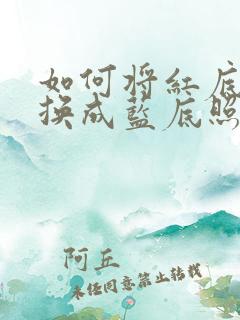 如何将红底
换成蓝底照
阿丘
未经同意禁止转载